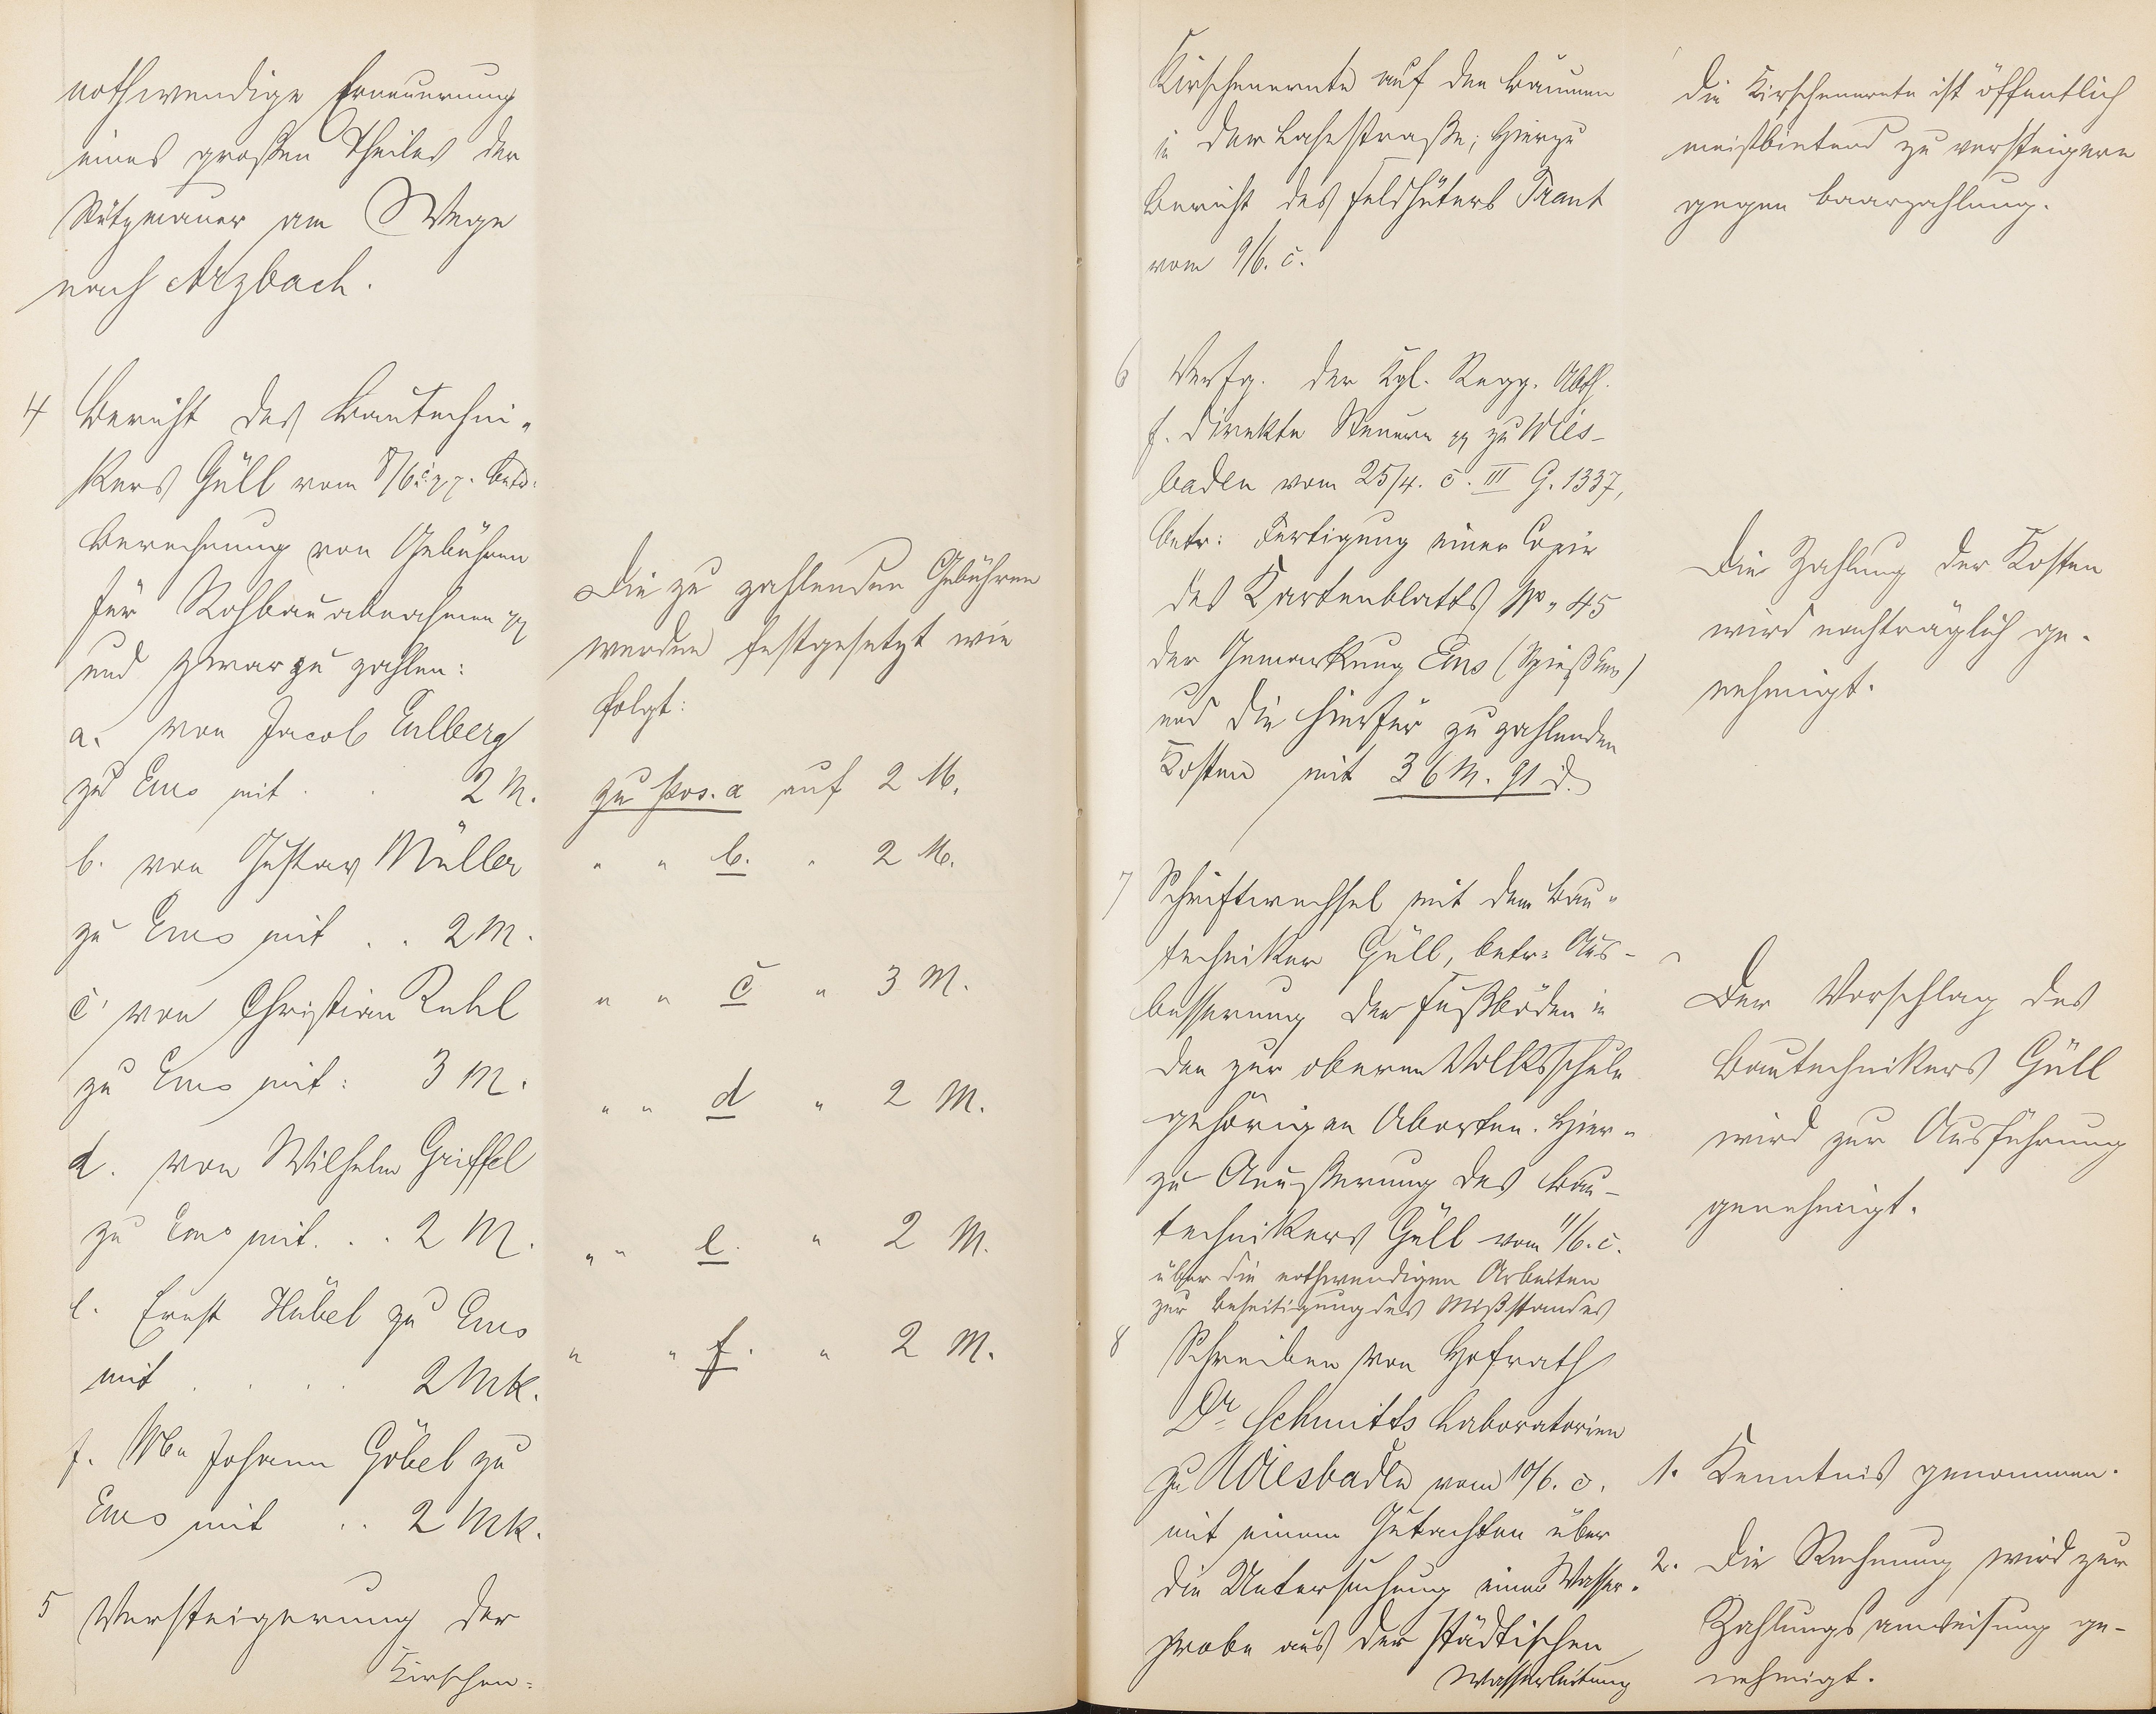 nothwendige Erneuerung
eines großen Theiles der
Stützmauer am Wege
nach Arzbach.
4 Bericht des Bautechni-
kers Güll vom 8/6. c. pp. betr.
Berechnung von Gebühren
für Rohbauabnahmen pp
und zwar zu zahlen:
a. von Jacob Eulberg
zu Ems mit . . 2 M.
b. von Gustav Müller
zu Ems mit . . 2 M.
c von Christian Ruhl
zu Ems mit: 3 M.
d. von Wilhelm Griffel
zu Ems mit . . . 2 M.
e. Ernst Hübel zu Ems
mit . . . . 2 Mk.
f. Johann Göbel zu
Ems mit . . 2 Mk.
5 Versteigerung der
Kirschen-
Die zu zahlenden Gebühren
werden festgesetzt wie
folgt:
zu Pos. a auf 2 M.
" " b. " 2 M.
" " c " 3 M.
" " d " 2 M.
" " e. " 2 M.
" " f. " 2 M.
Kirschenernte auf den Bäumen
in der Lahnstraße; hierzu
Bericht des Feldhüters Trant
vom 9/6. c.
6 Verfg. der Kgl. Regg. Abth.
f. direkte Steuern pp zu Wies-
baden vom 25/4. c. III G. 1337,
betr: Fertigung einer Copie
des Kartenblatts No. 45
der Gemarkung Ems (Spieß Ems)
und die hierfür zu zahlenden
Kosten mit 36 M. 91 d.
7 Schriftwechsel mit dem Bau-
techniker Güll, betr: Aus-
besserung der Fußböden in
den zur oberen Volksschule
gehörigen Aborten. Hier-
zu Aeußerung des Bau-
technikers Güll vom 11/6. c.
über die nothwendigen Arbeiten
zur Beseitigung des Mißstandes
8 Schreiben von Hofrath
Dr Schmitts Laboratorien
zu Wiesbaden vom 10/6. c.
mit einem Gutachten über
die Untersuchung einer Wasser-
probe aus der städtischen
Wasserleitung
Die Kirschenernte ist öffentlich
meistbietend zu versteigern
gegen Baarzahlung.
Die Zahlung der Kosten
wird nachträglich ge-
nehmigt.
Der Vorschlag des
Bautechnikers Güll
wird zur Ausführung
genehmigt.
1. Kenntnis genommen.
2. Die Rechnung wird zur
Zahlungsanweisung ge-
nehmigt.